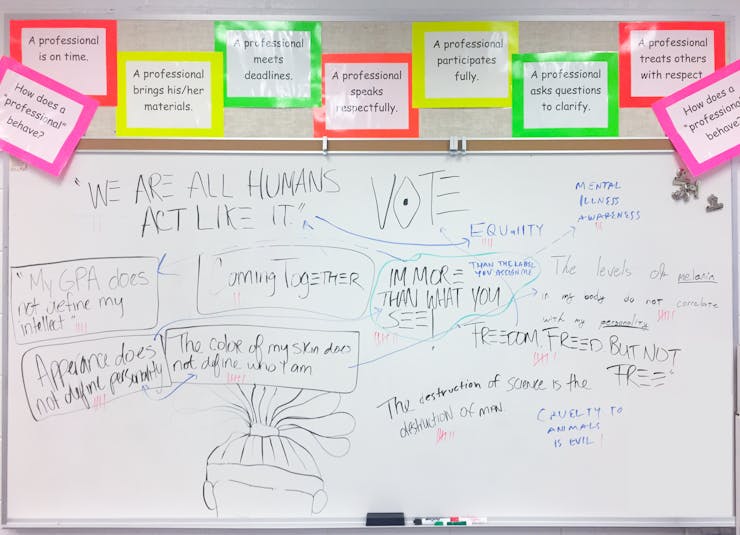 A professional
is on time.
A professional
brings his/her
materials.
A professional
meets
deadlines.
A professional
speaks
respectfully.
A professional
participates
fully.
A professional
asks questions
to clarify.
A professional
treats others
with respect
How does a
"professional"
behave?
How does a
"professional
behave?
"WE ARE ALL HUMANS
ACT LIKE IT."
VOTE
EQUALITY
MENTAL
ILLNESS
AWARENESS
"My GPA does
not define my
intellect"
Coming TogETHER
IM MORE
THAN WHAT YOU
SEE!
THAN THE LABEL
YOU ASSIGN ME
The levels of melanin
in my body do not correlate
with my personality
FREEDOM. FREED BUT NOT
FREE"
Apperance does
not define personality
The color of my skin does
not define who I am
The destruction of science is the
destruction of MAN.
CRUELTY TO
ANIMALS
IS EVIL!